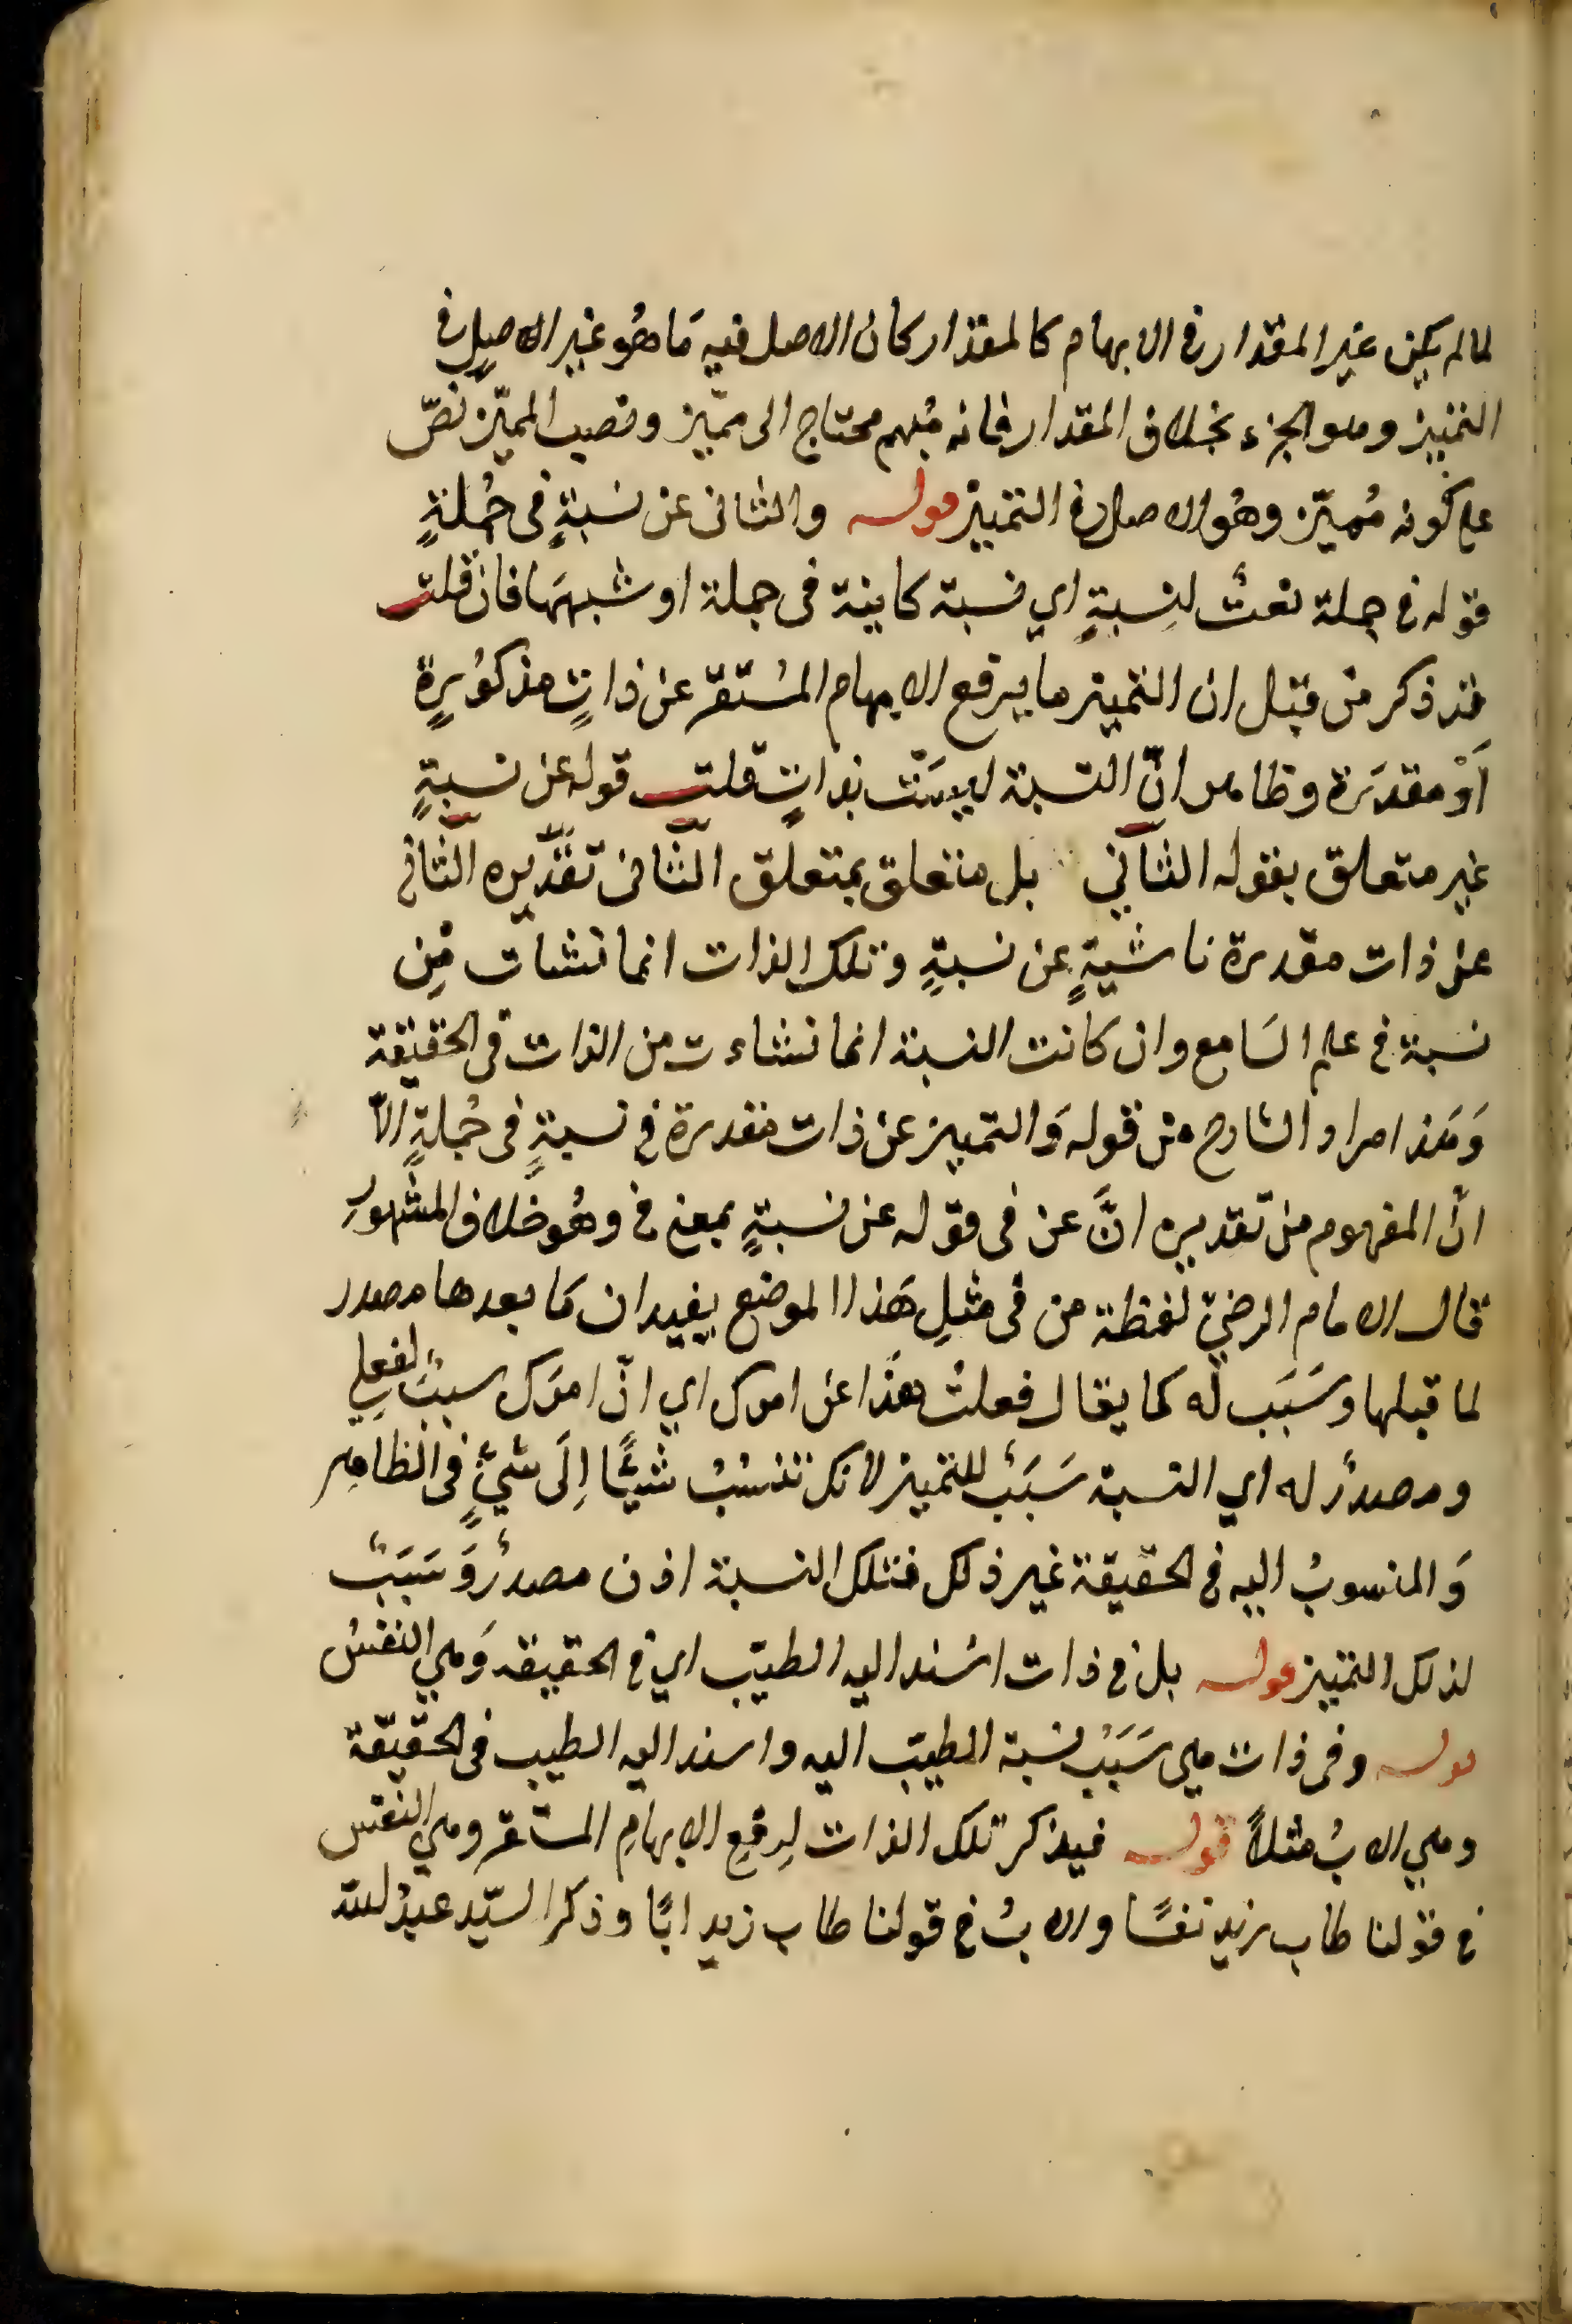 لما لم يكن غير المقدار في الابهام كالمقدار كان الاصل فيه مَا هُو غير الاصل في
التمييز وهو الجزء بخلاف المقدار فانه مُبهم محتاج الى مميّز ونصب المميّز نصّ
على كونه مُميّز وهُو الاصل في التمييز قوله والثانى عن نسَبةٍ فى جُملةٍ
قوله في جملة نعتٌ لنِسبةٍ اي نسبة كاينة فى جملة او شبههَا فان قلت
قد ذكر من قبل ان التمييز ما يرفع الابهام المسُتقر عن ذاتٍ مذكوُرةٍ
اَوْ مقدَرة وظاهر انّ النسبة ليسَت بذاتٍ قلت قوله عن نسبةٍ
غير متعلق بقوله الثاني بل متعلق بمتعلق الثّانى تقدّيره الثّانى
عن ذات مقدرة ناشيةٍ عن نسبةٍ وتلك الذات انما نشات مِن
نسبة في علم السَامع وان كانت النسبة انما نشاءت من الذات فى الحقيقة
وَهَذا مراد الشارح من قوله وَالتمييز عن ذات مقدرة في نسبةٍ فى جُملةٍ الّا
انّ المفهوم من تقديره انَّ عن فى قوله عن نسبةٍ بمعنى في وهُو خلاف المشَهورِ
قال الامام الرضيّ لفظة من فى مثلِ هَذا الموضع يفيد ان مَا بعدها مصدر
لما قبلها وسَبَب له كما يقال فعلتُ هَذا عن امرك اي انّ امرَك سببٌ لفعلِي
ومصدرٌ له اي النسبة سَبَبٌ للتمييز لانك تنسُبُ شئًا اِلَى شيءٍ فى الظاهِر
وَالمنسوبُ اليه في الحقيقة غير ذلك فتلك النسبة اذن مصدرٌ وَسَبَبٌ
لذلك التمييز قوله بل في ذات اسُند اليه الطيّب اي في الحقيقه وَهي النفسُ
قوله وفى ذات هي سَبَبُ نسبة الطيّب اليه واسند اليه الطيب فى الحقيقة
وهي الابُ مثلاً قوله فيذكر تلك الذات لِرفعِ الابهامِ المستقر وهي النفس
في قولنا طاب زيد نفسًا والابُ في قولنا طاب زيد ابًا وذكر السيّد عبدُ الله